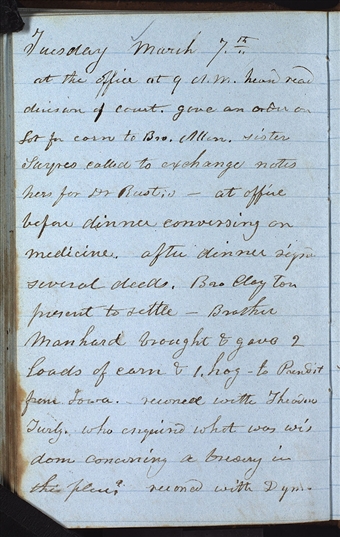 Tuesday March 7.th
at the office at 9 A.M. heard read
division of court. gave an order on
Lot for corn to Bro. Allen. Sister
Sayres called to exchange notes
hers for Dr — at office
before dinner conversing on
medicine. after dinner
several deeds. Bro Clayton
present to settle — Brother
Manhard brought & gave 2
Loads of corn & 1. hog - to
from Iowa. reconed with Theodore
Turly. who enquired what was wis
dom concerning a brewery in
this place? reconed with